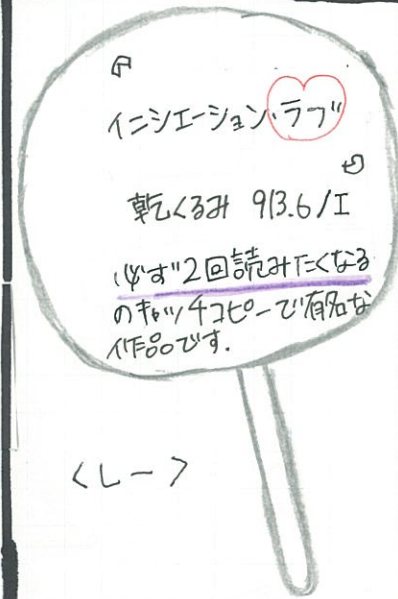 『
イニシエーション・ラブ
』
乾くるみ 913.6/I
必ず2回読みたくなる
のキャッチコピーで有名な
作品です.
くしー>